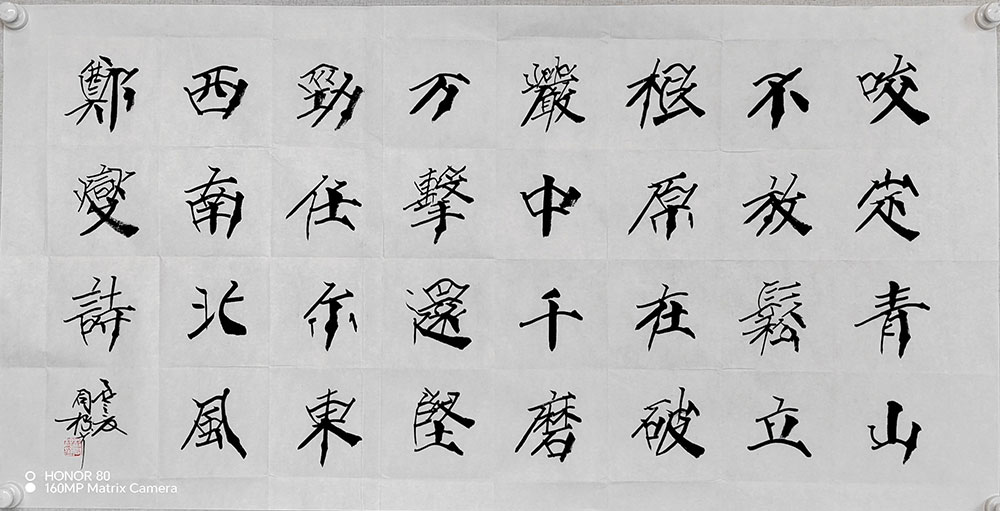 咬定青山
不放鬆立
根原在破
嚴中千磨
万擊還堅
勁任尔東
西南北風
鄭燮詩
HONOR 80
160MP Matrix Camera